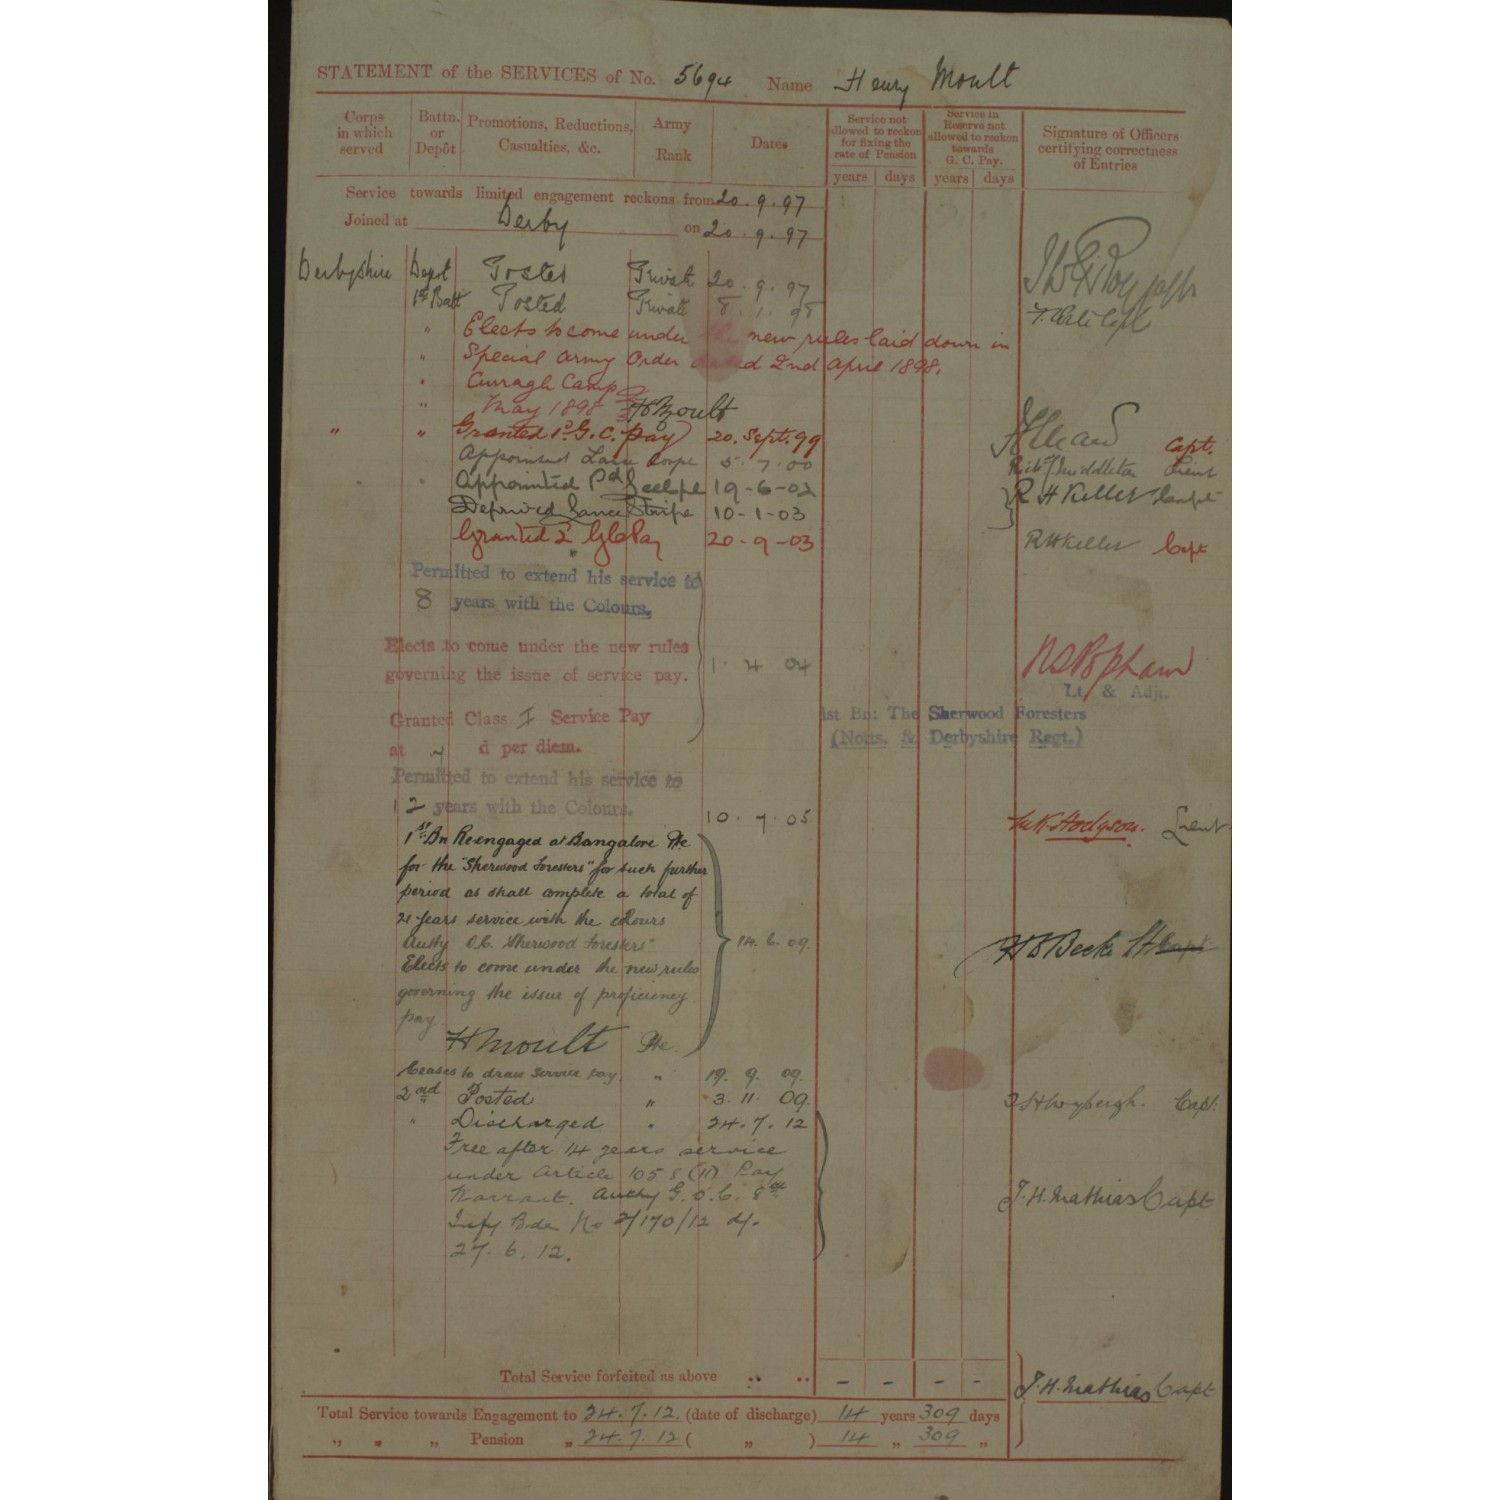 STATEMENT of the SERVICES of No. 5694 Name Henry Moult
Corps in which served
Battn. or Depôt
Promotions, Reductions, Casualties, &c.
Army Rank
Dates
Service not allowed to reckon for fixing the rate of Pension
years days
Service in Reserve not allowed to reckon towards G. C. Pay.
years days
Signature of Officers certifying correctness of Entries
Service towards limited engagement reckons from 20.9.97
Joined at Derby on 20.9.97
Derbyshire Depot Posted Private 20.9.97
1st Batt Posted Private 8.1.98
" Elects to come under new rules laid down in
" Special Army Order dated 2nd April 1898.
" Curragh Camp
" May 1898 H Moult
" " Granted 1st G. C. Pay 20. Sept. 99 Capt.
Appointed Lance Corpl 5.7.00 Middleton Lieut
" " Appointed Pd Lcelpl 19-6-02 R H Keller
Deprived Lance Stripe 10-1-03
Granted 2 G C Pay 20-9-03 R H Keller Capt
Permitted to extend his service to
8 years with the Colours.
Elects to come under the new rules
governing the issue of service pay. 1. 4 04 Popham
Lt. & Adj.
Granted Class I Service Pay 1st Bn: The Sherwood Foresters
at d per diem. (Notts. & Derbyshire Regt.)
Permitted to extend his service to
12 years with the Colours. 10.7.05 Hodgson. Lieut
1st Bn Reengaged at Bangalore Pte
for the "Sherwood Foresters" for such further
period as shall complete a total of
21 years service with the colours
Authy O.C. "Sherwood Foresters" 14.6.09. H S Beck Lt Capt
Elects to come under the new rules
governing the issue of proficiency
pay.
H Moult Pte.
Ceases to draw service pay " 19. 9. 09.
2nd Posted " 3. 11. 09. Capt.
" Discharged " 24.7.12
Free after 14 years service
under Article 1058 (11) Pay
Warrant. Authy G.O.C. 8th J.H. Mathias Capt
Infy Bde No 2/170/12 d/-
27.6.12.
Total Service forfeited as above .. .. - - - - J.H. Mathias Capt
Total Service towards Engagement to 24.7.12. (date of discharge) 14 years 309 days
" " " Pension " 24.7.12 ( " ) 14 " 309 "